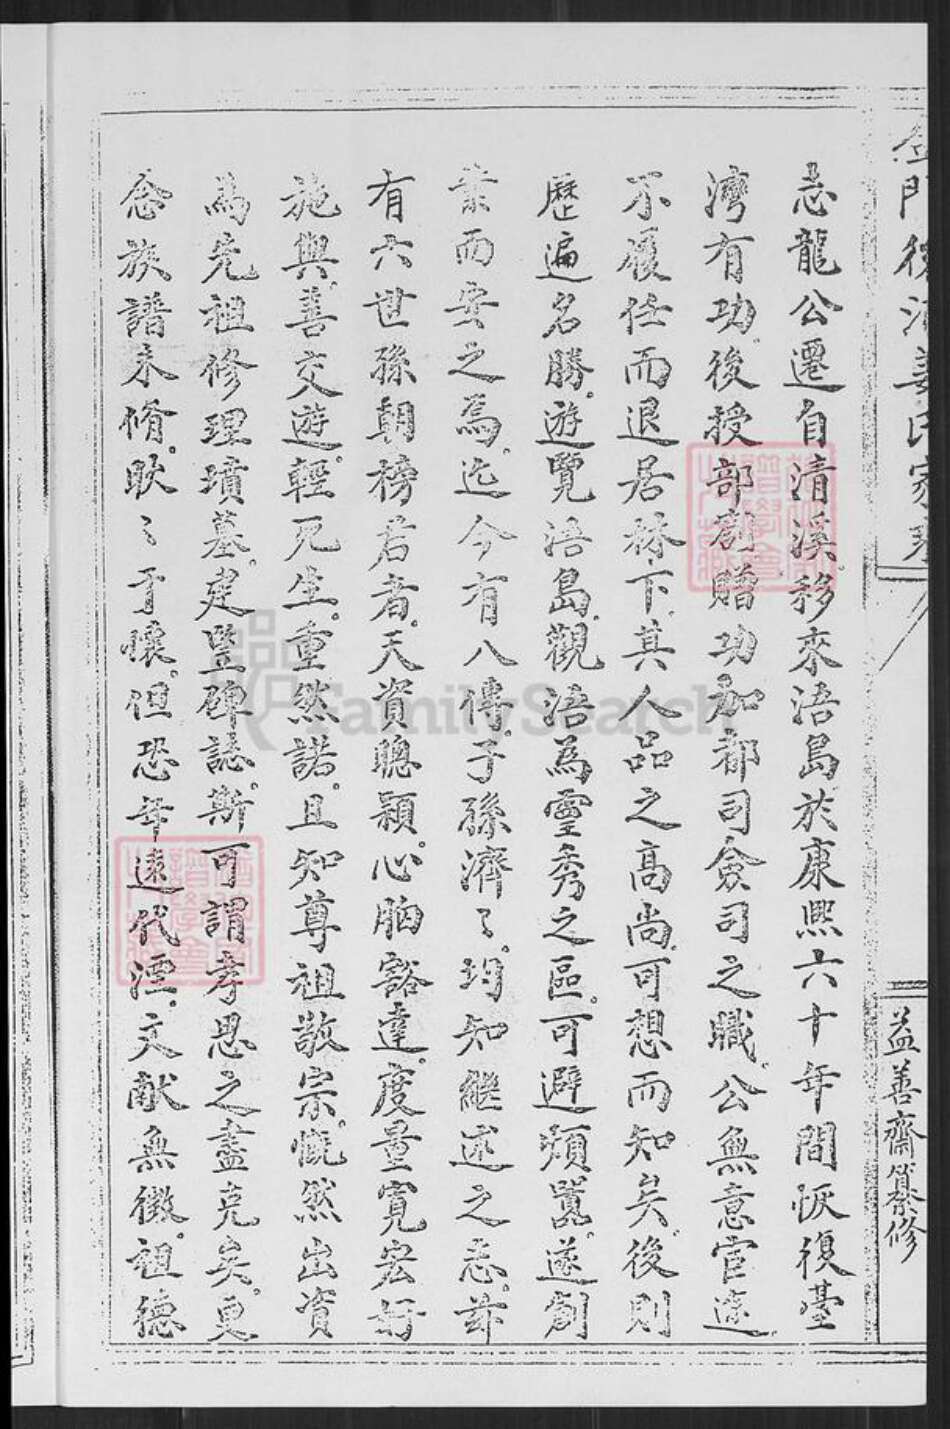 金門後浦姜氏家乘
益善齋纂修
志龍公遷自清溪移來浯島於康熙六十年間恢復臺
灣有功後授部劄贈功加都司僉司之職公無意官途
不履任而退居林下其人品之高尚可想而知矣後則
歷遍名勝遊覽浯島觀浯為靈秀之區可避煩囂遂創
業而安之焉迄今有八傳子孫濟々均知繼述之志茲
有六世孫朝榜君者天資聰穎心胸豁達度量寬宏好
施與善交遊輕死生重然諾且知尊祖敬宗慨然出資
為先祖修理墳墓建豎碑誌斯可謂孝思之盡克矣更
念族譜未脩耿々于懷但恐年遠代湮文献無徵祖德
FamilySearch